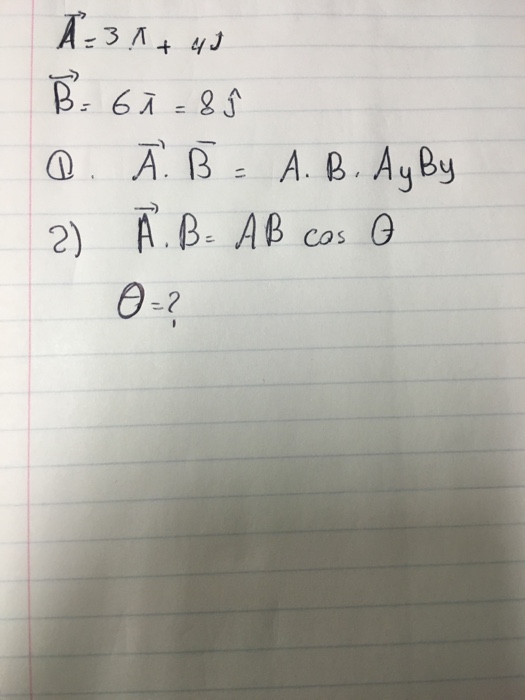 A⃗ = 3 i + 4J
B⃗ = 6 i = 8 ĵ
①. A⃗ . B̄ = A. B. AyBy
2) A⃗ . B = AB cos θ
θ = ?